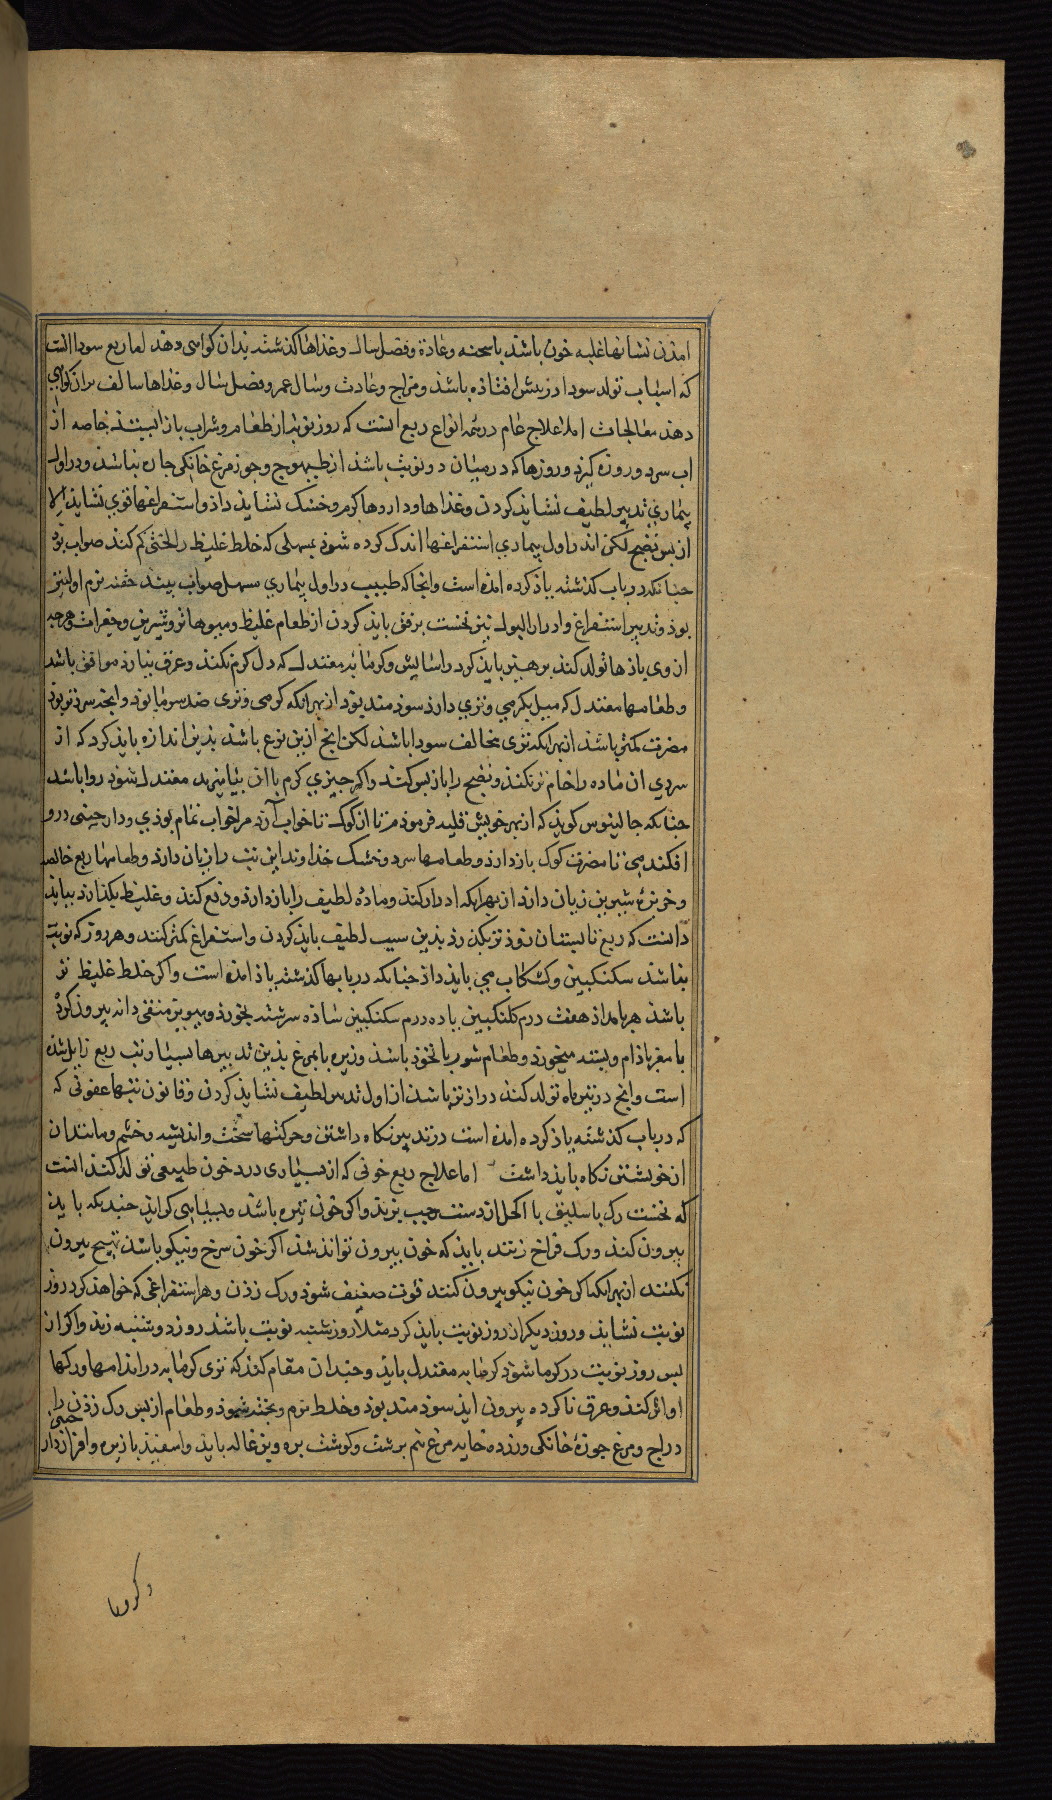 امدن نشانها غلبه خون باشد با سحنه وعادة وفصل سال وغذاها کذشته بدان کواهی دهد اما ربع سودا انست
که اسباب تولد سودا در پیش افتاذه باشد ومزاج وعادت وسال عمر وفصل سال وغذاها سالف بران کواهی
دهد معالجات اما علاج عام در همه انواع ربع انست که روز نوبه از طعام وشراب باز ایستد خاصه از
اب سرد وروزه کیرد وروزها که در میان دو نوبت باشد از طیهوج وجوز مرغ خانکی جاره نباشد ودر اول
بیماری تدبیر لطیف نشاید کردن وغذاها وداروها کرم وخشک نشاید داذ واستفراغها قوی نشاید الا
از بس نضج لکن اندر اول بیماری استفراغها اندک کرده شود بمسهلی که خلط غلیظ را لختی کم کند صواب بوذ
جنانکه در باب کذشته یاذ کرده امذه است وانجا که طبیب در اول بیماری مسهل صواب بیند حقنه نرم اولیتر
بوذ وتدبیر استفراغ وادرار البول نیز نخست برفق باید کردن از طعام غلیظ ومیوها تر وشیرین وبقرات وهرجه
از وی باذها تولد کند برهیز باید کرد واسایش وکرمابه معتدل که دل کرم نکند وعرق نیارد موافق باشد
وطعامها معتدل که میل بکرمی وتری دارد سوذمند بوذ از بهر انکه کرمی وتری ضد سرما بوذ وانجه سردتر بوذ
مضرت کمتر باشد از بهر انکه تری مخالف سودا باشد لکن انج ازین نوع باشد بدین اندازه باید کرد که از
سردی ان ماده را خام تر نکند ونضج را باز بس نکند واکر جیزی کرم با ان بیامیزند معتدل شود روا باشد
جنانکه جالینوس کوید که از بهر خویش قلیه فرمودم تا از کوک تا خواب آرد مرا خواب تمام بوذی ودارجینی درو
افکندمی تا مضرت کوک باز دارد وطعامها سرد وخشک خداوند این تب را زیان دارد وطعامها ربع خالصه
وخربزه شیرین زیان دارد از بهر انکه ادرار کند وماده لطیف را باز دارد ودفع کند وغلیظ بکذارد بباید
دانست که ربع تابستان زوذتر بکذرد بدین سبب لطیف باید کردن واستفراغ کمتر کنند وهر روز که نوبت
نباشد سکنکبین وکشکاب می باید داذ جنانکه در بابها کذشته یاذ امذه است واکر خلط غلیظ تر
باشد هر بامداد هفت درم کلنکبین با ده درم سکنکبین ساذه سرشته بخورد ومویز منقی دانه بیرون کرده
با مغز باذام وبسته میخورد وطعام شوربا نخود باشد وزیره با بمرغ بدین تدبیرها بسیار تب ربع زایل شده
است وانج در تیرماه تولد کند درازتر باشد از اول تدبیر لطیف نشاید کردن وقانون تبها عفونی که
که در باب کذشته یاذ کرده امذه است در تدبیر نکاه داشتن وحرکتها سخت واندیشه وخشم ومانند ان
از خویشتن نکاه باید داشت اما علاج ربع خونی که از بسیاری درد خون طبیعی تولد کند انست
که نخست رک باسلیق یا اکحل از دست جب بزنند واکر خون تیره باشد وبسیاهی کراید جندانکه باید
بیرون کند ورک فراخ زنند باید که خون بیرون تواند شد اکر خون سرخ ونیکو باشد هیج بیرون
نکنند از بهر انکه اکر خون نیکو بیرون کنند قوت ضعیف شود ورک زدن وهر استفراغی که خواهد کرد روز
نوبت نشاید وروز دیکر از روز نوبت باید کرد مثلا روز شنبه نوبت باشد روز دوشنبه زند واکر از
بس روز نوبت در کرما شود کرمابه معتدل باید وجندان مقام کند که تری کرمابه در اندامها ورکها
او اثر کند وعرق ناکرده بیرون اید سوذمند بوذ وخلط نرم وبخته شوذ وطعام از بس رک زدن را
دراج ومرغ جوزهٔ خانکی وزرده خایه مرغ نیم برشت وکوشت بره وبزغاله باید واسفیدبا زیره وافزار دار
جینی
وکرویا